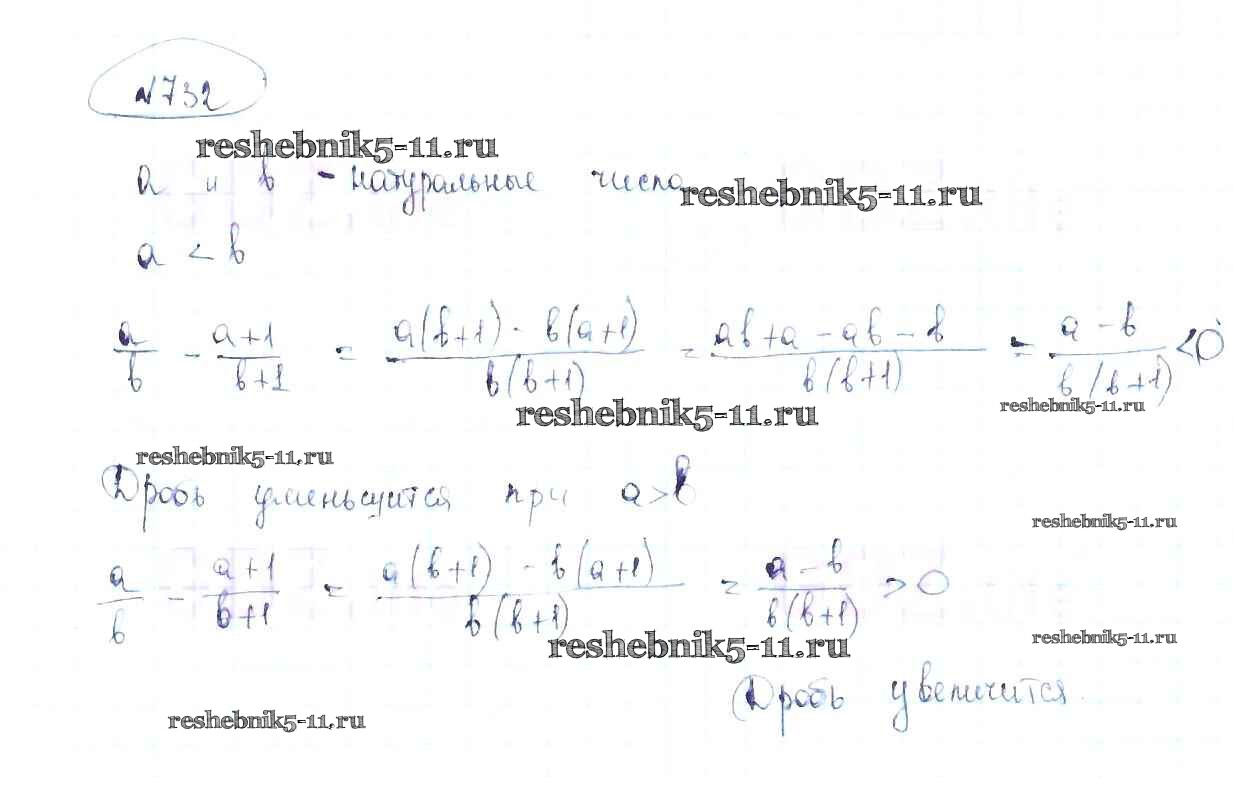 №732
reshebnik5-11.ru
a и b - натуральные числа
reshebnik5-11.ru
a < b
a/b - (a+1)/(b+1) = (a(b+1) - b(a+1))/(b(b+1)) = (ab+a-ab-b)/(b(b+1)) = (a-b)/(b(b+1)) < 0
reshebnik5-11.ru
reshebnik5-11.ru
reshebnik5-11.ru
Дробь уменьшится при a>b
reshebnik5-11.ru
a/b - (a+1)/(b+1) = (a(b+1) - b(a+1))/(b(b+1)) = (a-b)/(b(b+1)) > 0
reshebnik5-11.ru
reshebnik5-11.ru
Дробь увеличится.
reshebnik5-11.ru